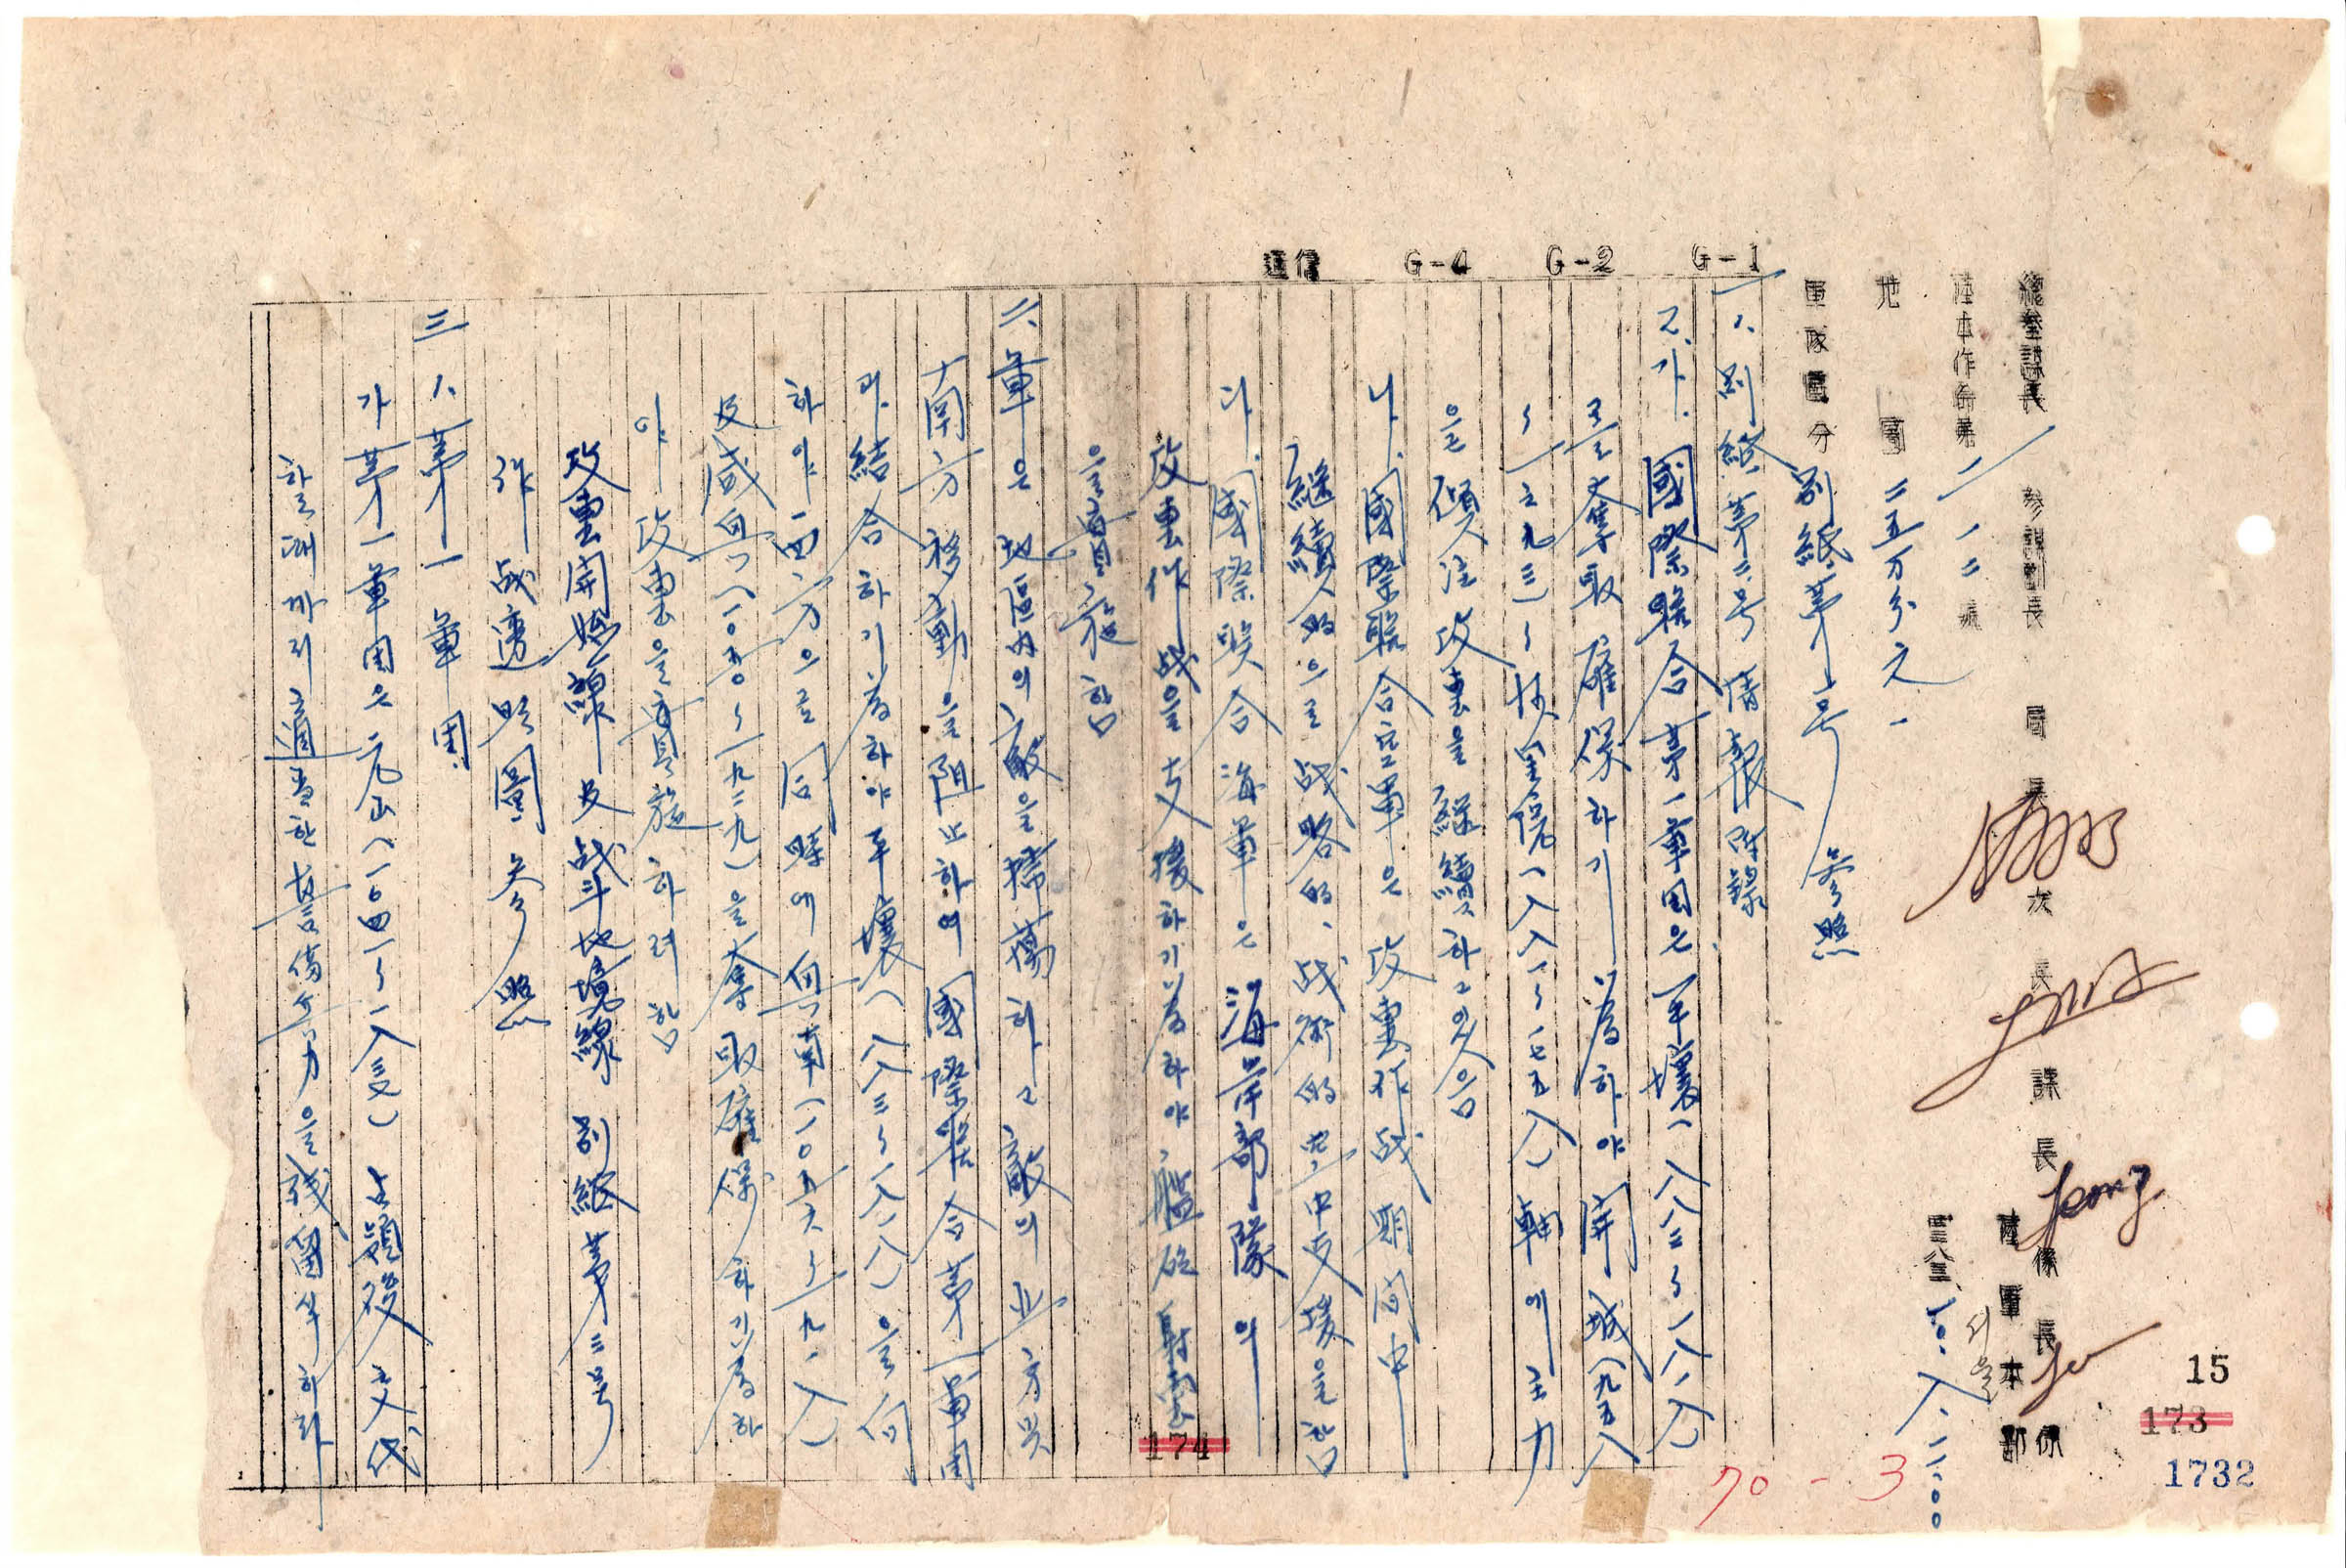 總參謀長 參謀副長 局長 次長 課長 係長 係
陸本作命第二一二號
陸軍本部
四二八三、一〇、八、二二:〇〇
서울
地圖 二五万分之一
軍隊區分 別紙第一号 參照
G-1 G-2 G-4 通信
一 1、別紙第二号 情報附錄
2、가. 國際聯合第一軍團은 平壤(八八三〇〜一八二八)
를 奪取確保하기 爲하야 開城(九五八
〜一七九三)〜 院(八八一〜一七五八)軸에 主力
을 傾注 攻擊을 繼續하고 있음
나. 國際聯合空軍은 攻擊作战期间中
継續的으로 战略的、战術的 空中支援을 함
다. 國際聯合海軍은 海岸部隊의
攻擊作战을 支援하기 爲하야 艦砲射擊
을 實施함
二、軍은 地區内의 敵을 掃蕩하고 敵의 北方 及
南方移動을 阻止하며 國際聯合第一軍團
과 結合하기 爲하야 平壤(八八三〜一八二八)을 向
하야 西方으로 同時에 興南(一〇五六〜一九一八)
及 咸興(一〇五〇〜一九二九)을 奪取確保하기 爲하
야 攻擊을 實施하려 함
攻擊開始線 及 战斗地境線 別紙第三号
作战透明圖 參照
三 1、第一軍團
가 第一軍團은 元山(一〇四一〜一八三)占領後 交代
할 때까지 適當한 警備兵力을 殘留식히라
15
173
1732
174
70-3